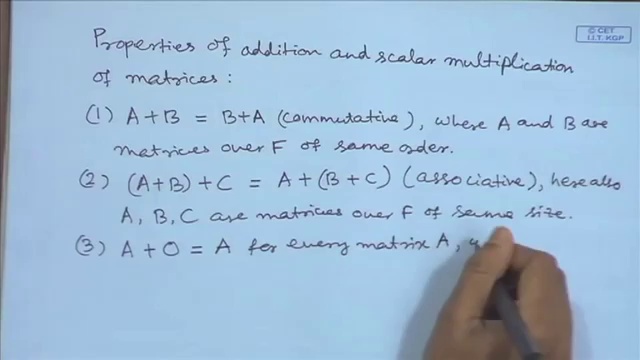 © CET
I.I.T. KGP
Properties of addition and scalar multiplication
of matrices :
(1) A+B = B+A (commutative), where A and B are
matrices over F of same order.
(2) (A+B)+C = A+(B+C) (associative), here also
A, B, C are matrices over F of same size.
(3) A + O = A for every matrix A,